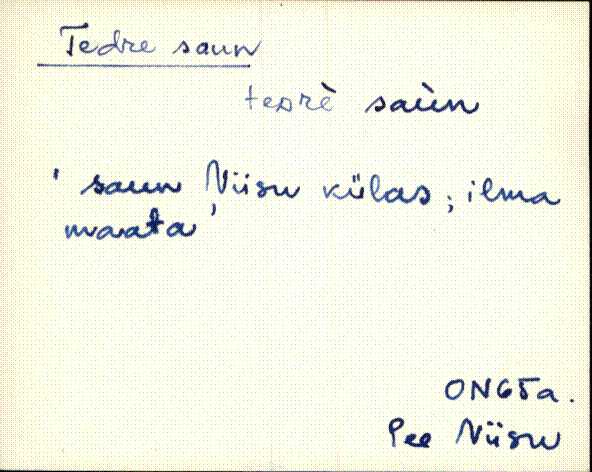 Tedre saun
teᴅrè saùn
' saun Niisu külas; ilma
maata '
ON65a.
Pee Niisu